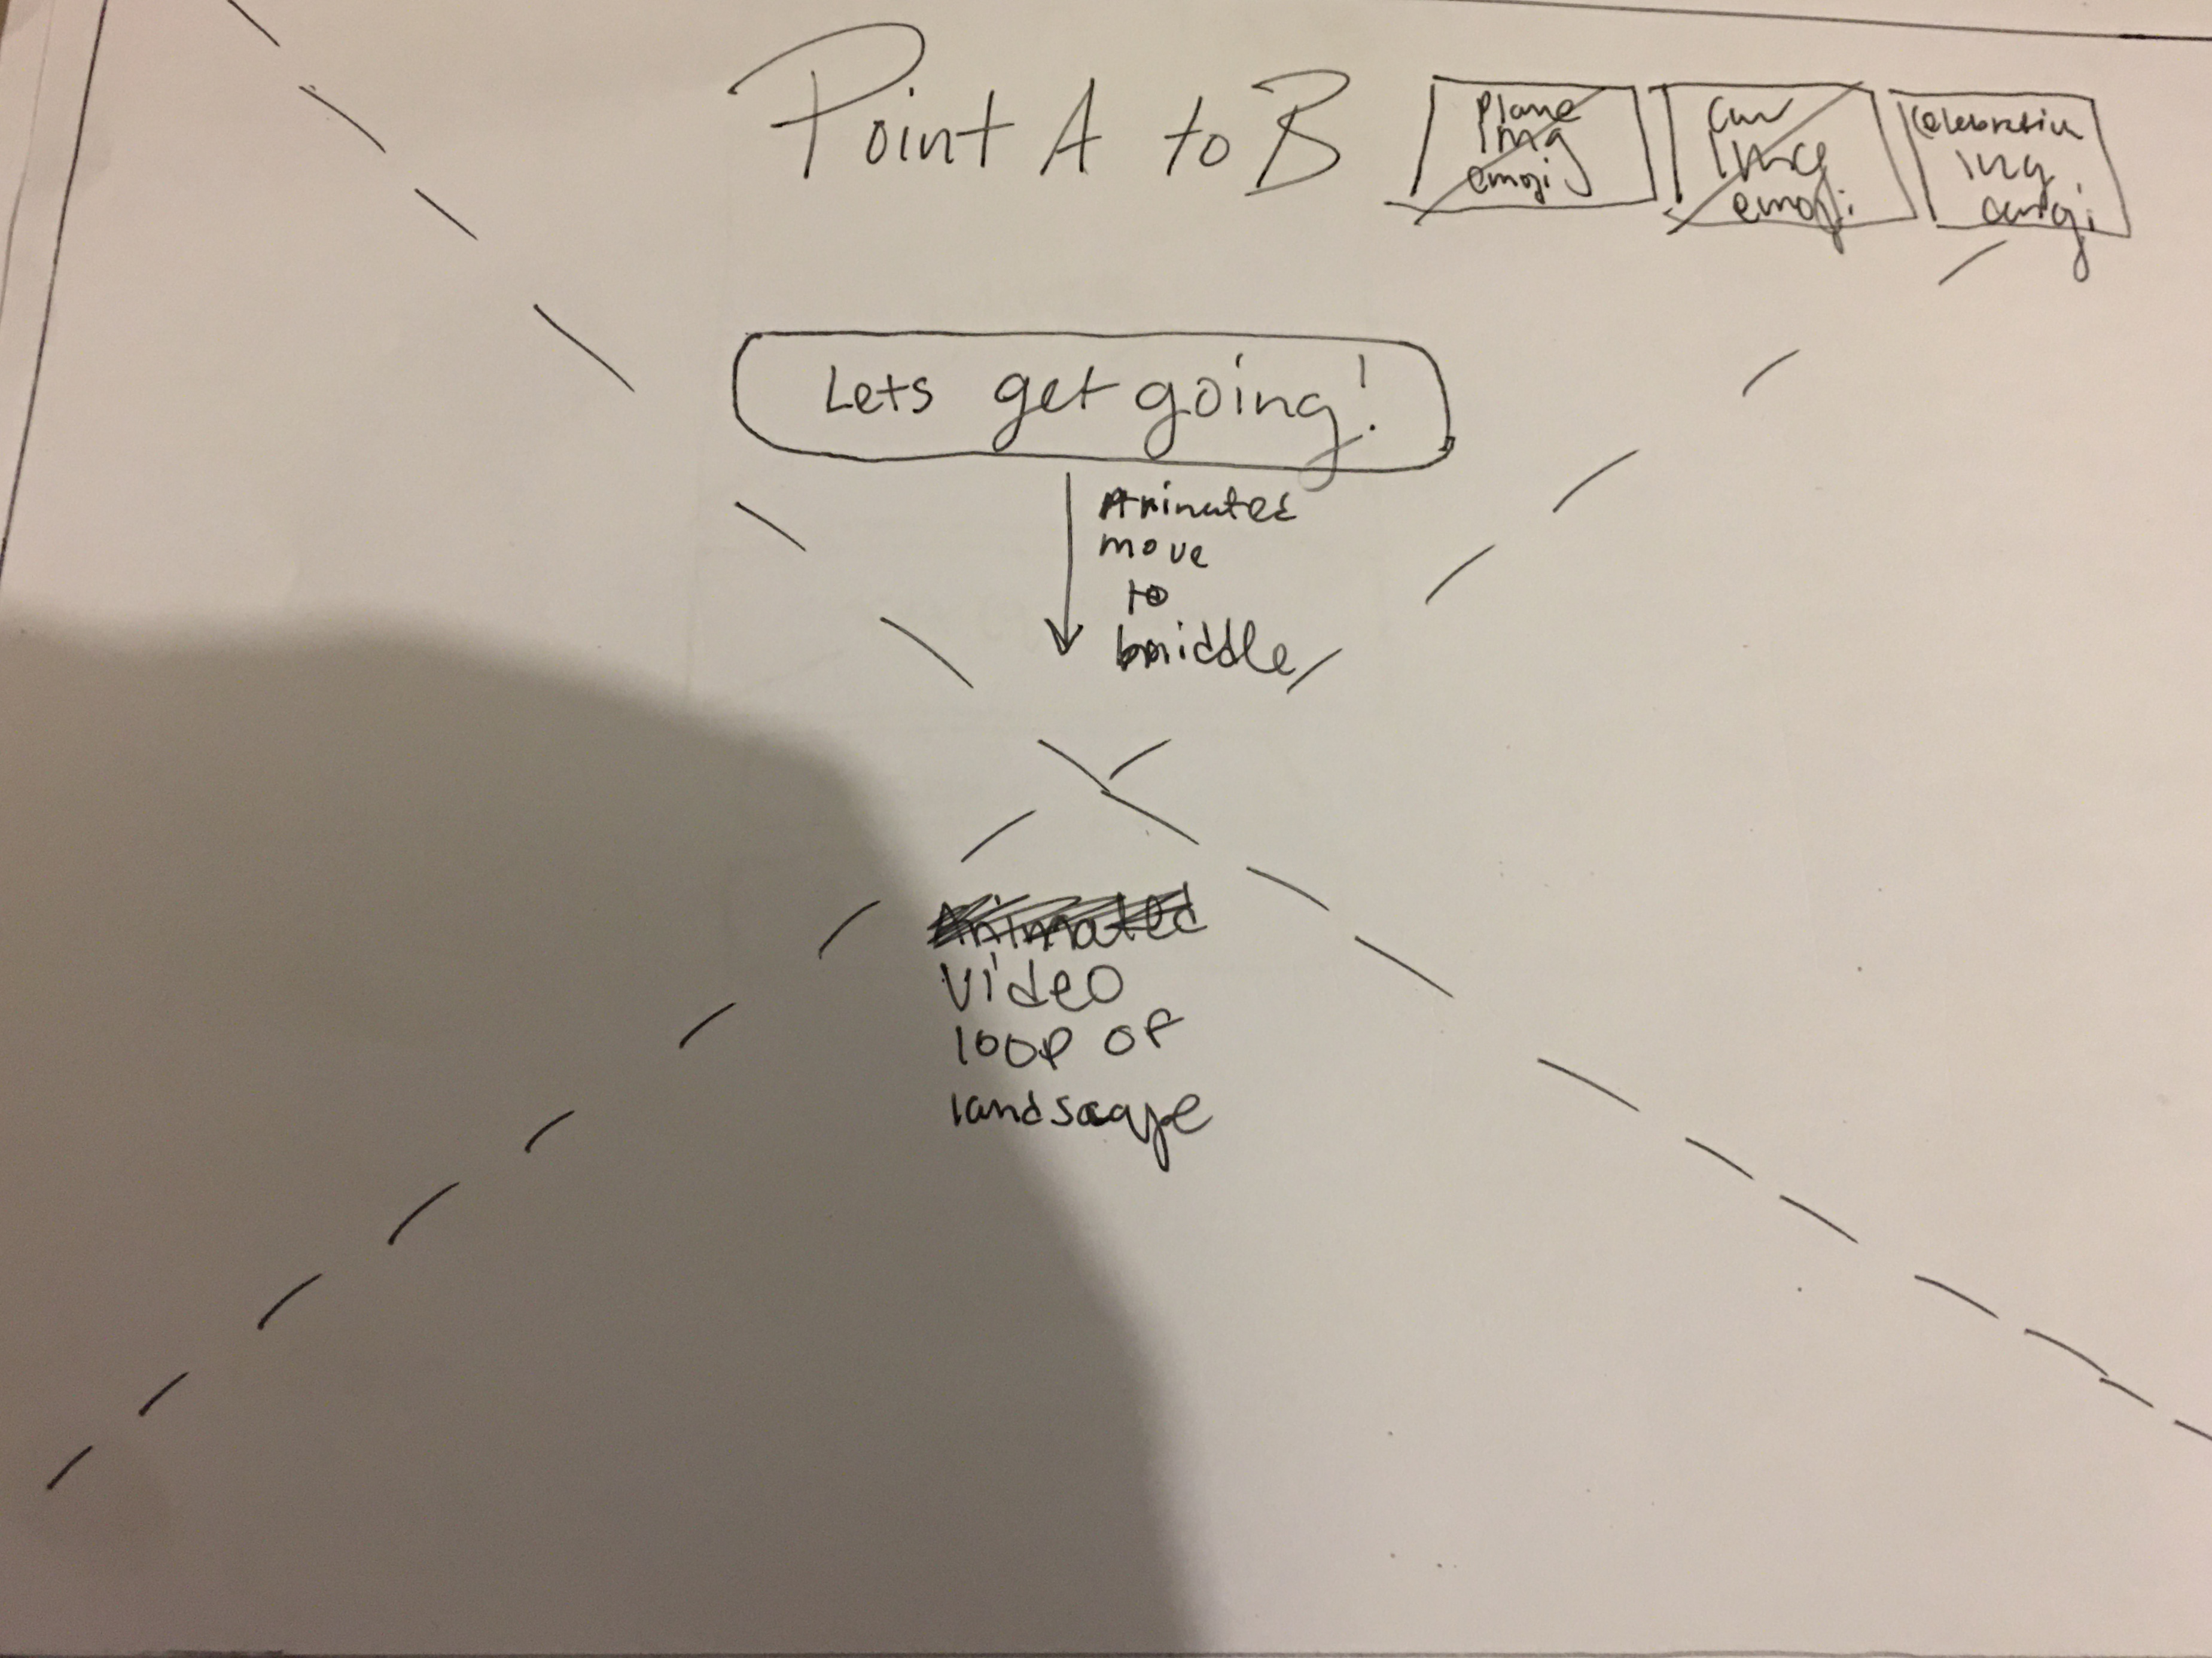 Point A to B
Plane
Img
emoji
Car
Img
emoji
Celebration
Img
emoji
Lets get going!
Animated
move
to
middle
Animated
Video
loop of
landscape